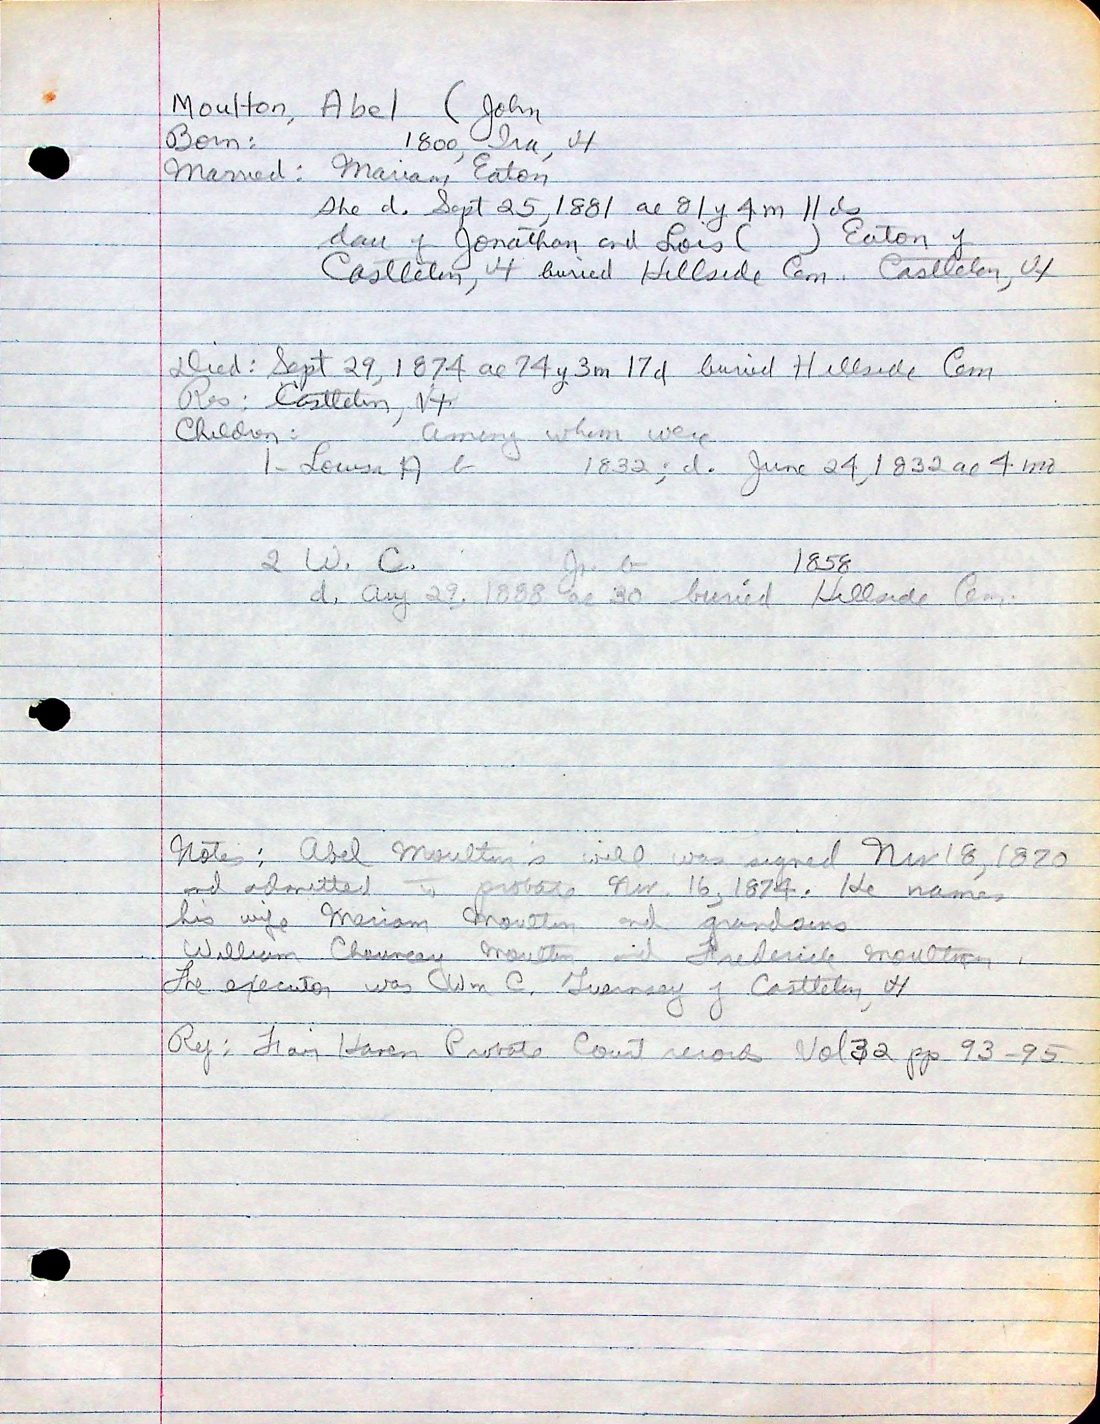 Moulton, Abel (John
Born: 1800, Ira, Vt
Married: Mariam Eaton
She d. Sept 25, 1881 ae 81y 4m 11ds
dau of Jonathan and Lois ( ) Eaton of
Castleton, Vt buried Hillside Cem. Castleton, Vt
Died: Sept 29, 1874 ae 74y 3m 17d buried Hillside Cem
Res: Castleton, Vt
Children: among whom were
1- Louisa A b 1832; d. June 24, 1832 ae 4 mo
2 W. C. Jr. b 1858
d. Aug 29, 1888 ae 30 buried Hillside Cem.
Notes: Abel Moulton's will was signed Nov 18, 1870
and admitted to probate Nov. 16, 1874. He names
his wife Meriam Moulton and grandsons
William Chauncey Moulton and Frederick Moulton.
The executor was Wm C. Guernsey of Castleton, Vt
Ref: Fair Haven Probate Court records Vol 32 pp 93-95